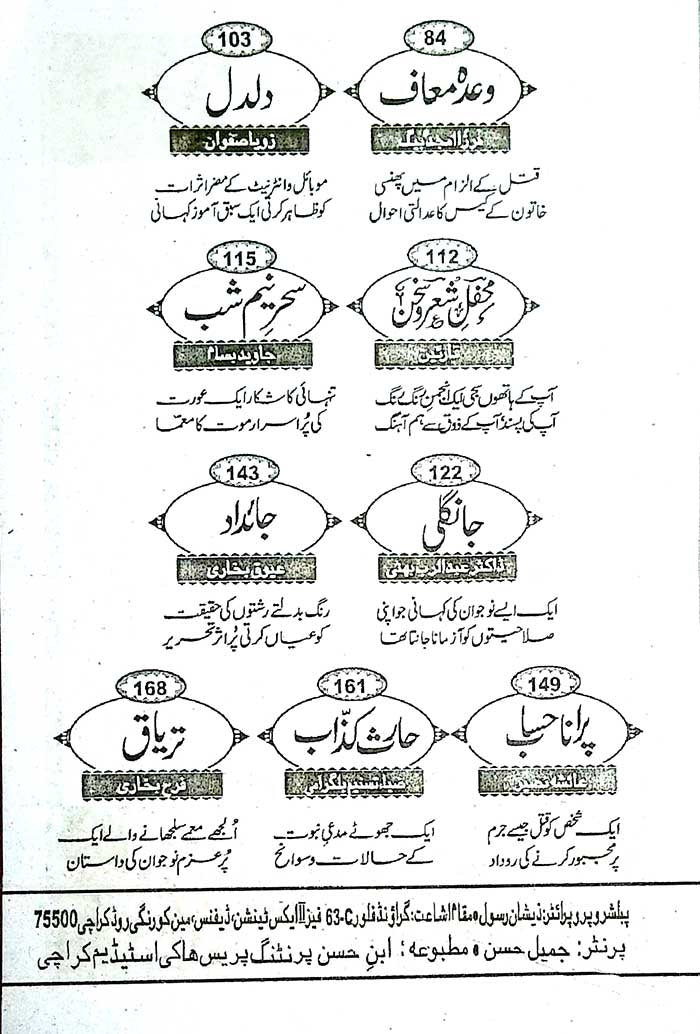 84
وعدہ معاف
مرزا امجد بیگ
قتل کے الزام میں پھنسی
خاتون کے کیس کا عدالتی احوال
103
دلدل
زویا صفوان
موبائل و انٹرنیٹ کے مضر اثرات
کو ظاہر کرتی ایک سبق آموز کہانی
112
محفلِ شعر و سخن
قارئین
آپ کے ہاتھوں سجی ایک انجمنِ رنگ رنگ
آپ کی پسند آپ کے ذوق سے ہم آہنگ
115
سحرِ نیم شب
جاوید بسام
تنہائی کا شکار ایک عورت
کی پُراسرار موت کا معمّا
122
جانگلی
ڈاکٹر عبدالرب بھٹی
ایک ایسے نوجوان کی کہانی جو اپنی
صلاحیتوں کو آزمانا جانتا تھا
143
جائداد
عیوق بخاری
رنگ بدلتے رشتوں کی حقیقت
کو عیاں کرتی پُراثر تحریر
149
پرانا حساب
ایک شخص کو قتل جیسے جرم
پر مجبور کرنے کی روداد
161
حارث کذّاب
بلگرامی
ایک جھوٹے مدعیِ نبوت
کے حالات و سوانح
168
تریاق
فرح بخاری
اُلجھے معمے سلجھانے والے ایک
پُرعزم نوجوان کی داستان
پبلشر و پروپرائٹر: ذیشان رسول • مقام اشاعت: گراؤنڈ فلور 63-C فیز II ایکس ٹینشن، ڈیفنس، مین کورنگی روڈ کراچی 75500
پرنٹر: جمیل حسن • مطبوعہ: ابنِ حسن پرنٹنگ پریس ہاکی اسٹیڈیم کراچی